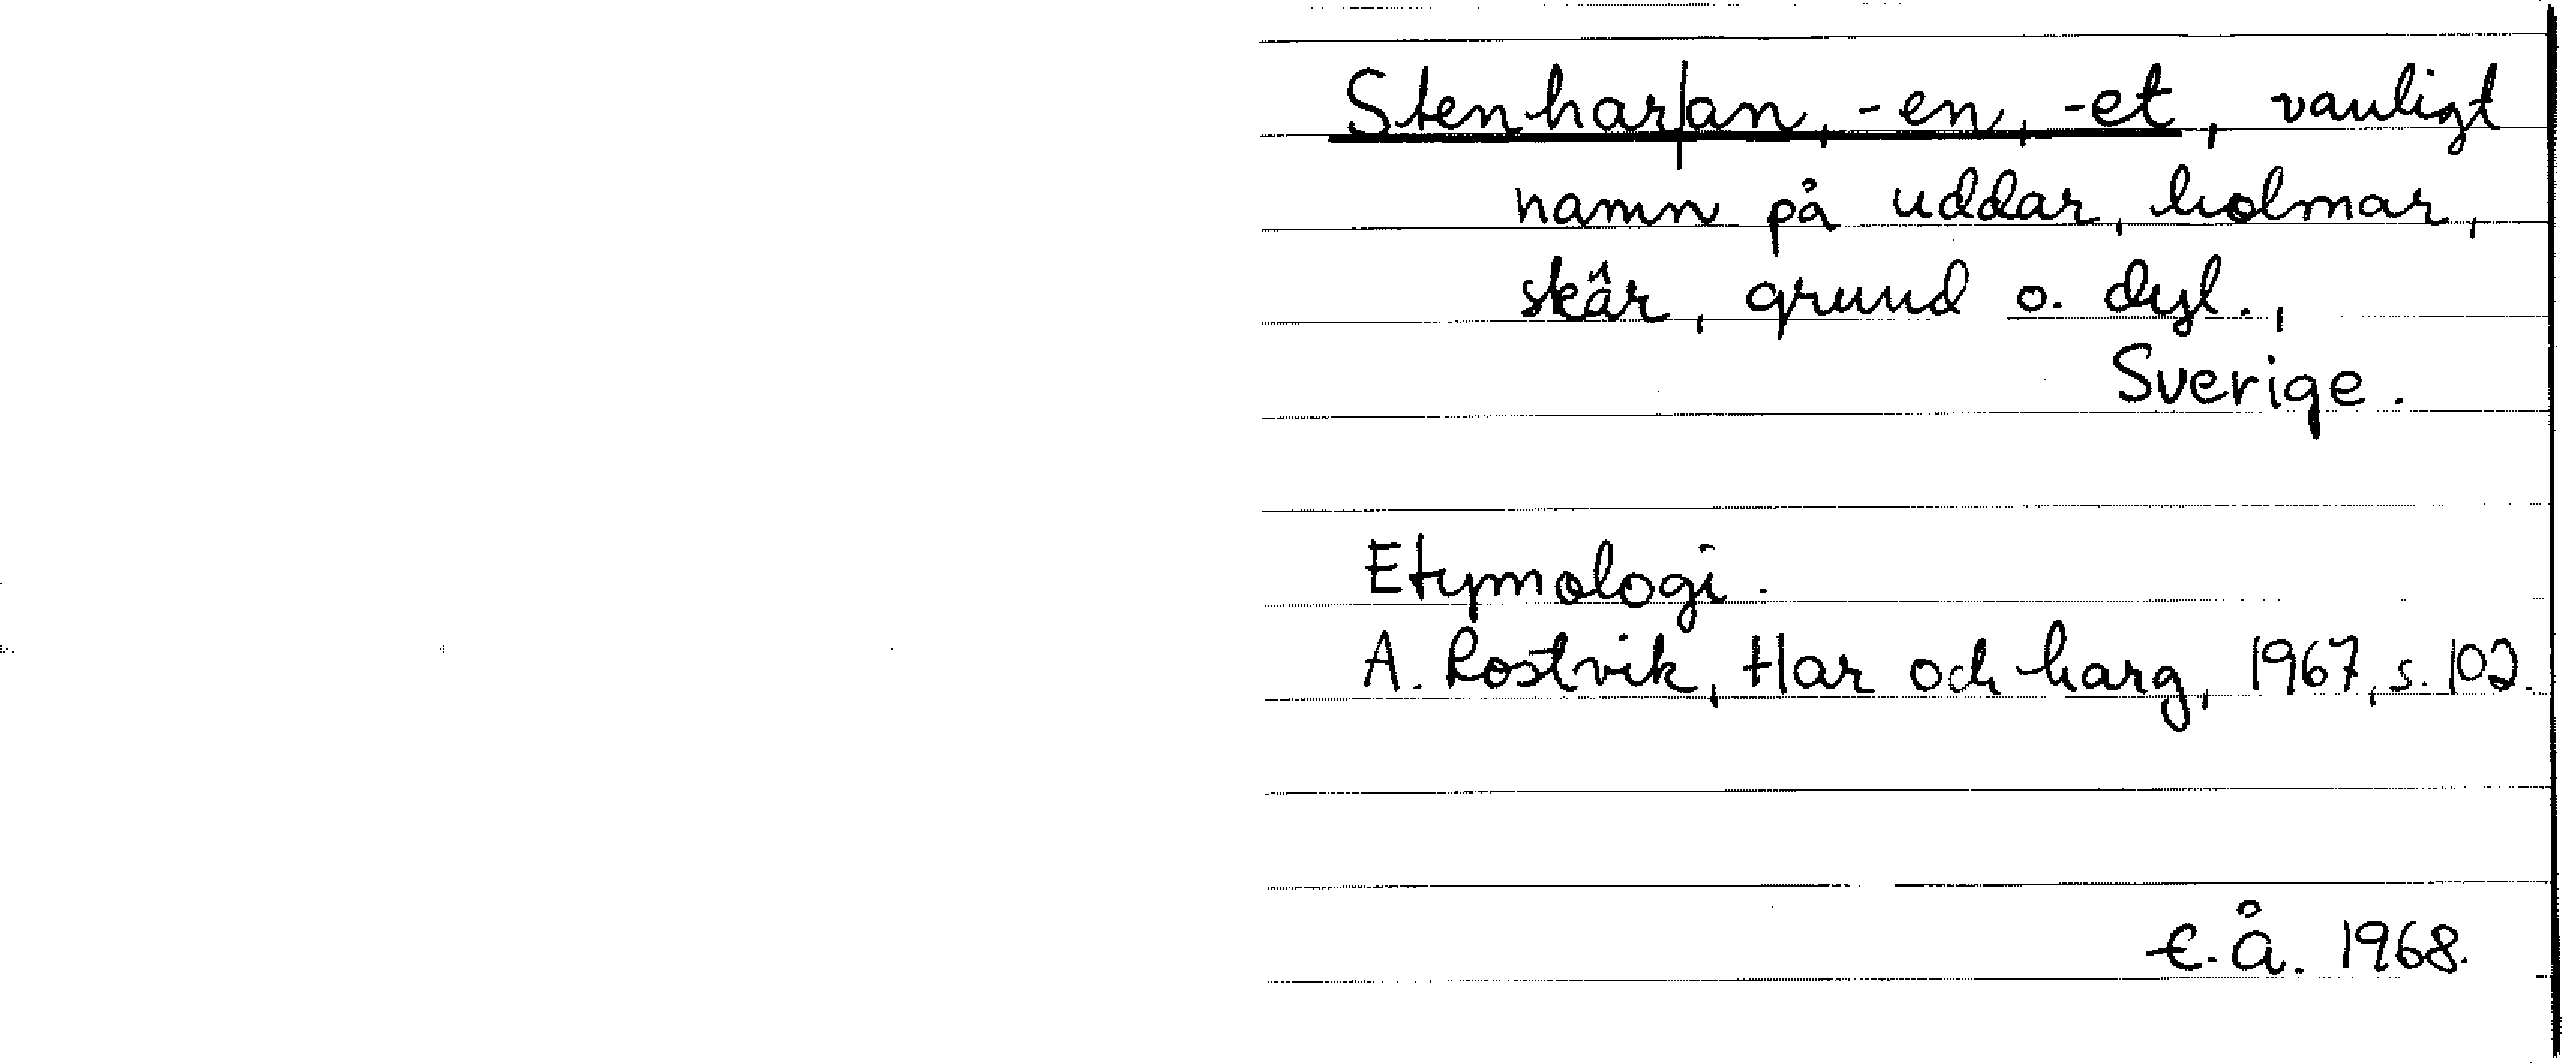 Stenhar|an, -en, -et, vanligt
namn på uddar, holmar,
skär, grund o. dyl.,
Sverige.
Etymologi.
A. Rostvik, Har och harg, 1967, s. 102.
E.Å. 1968.